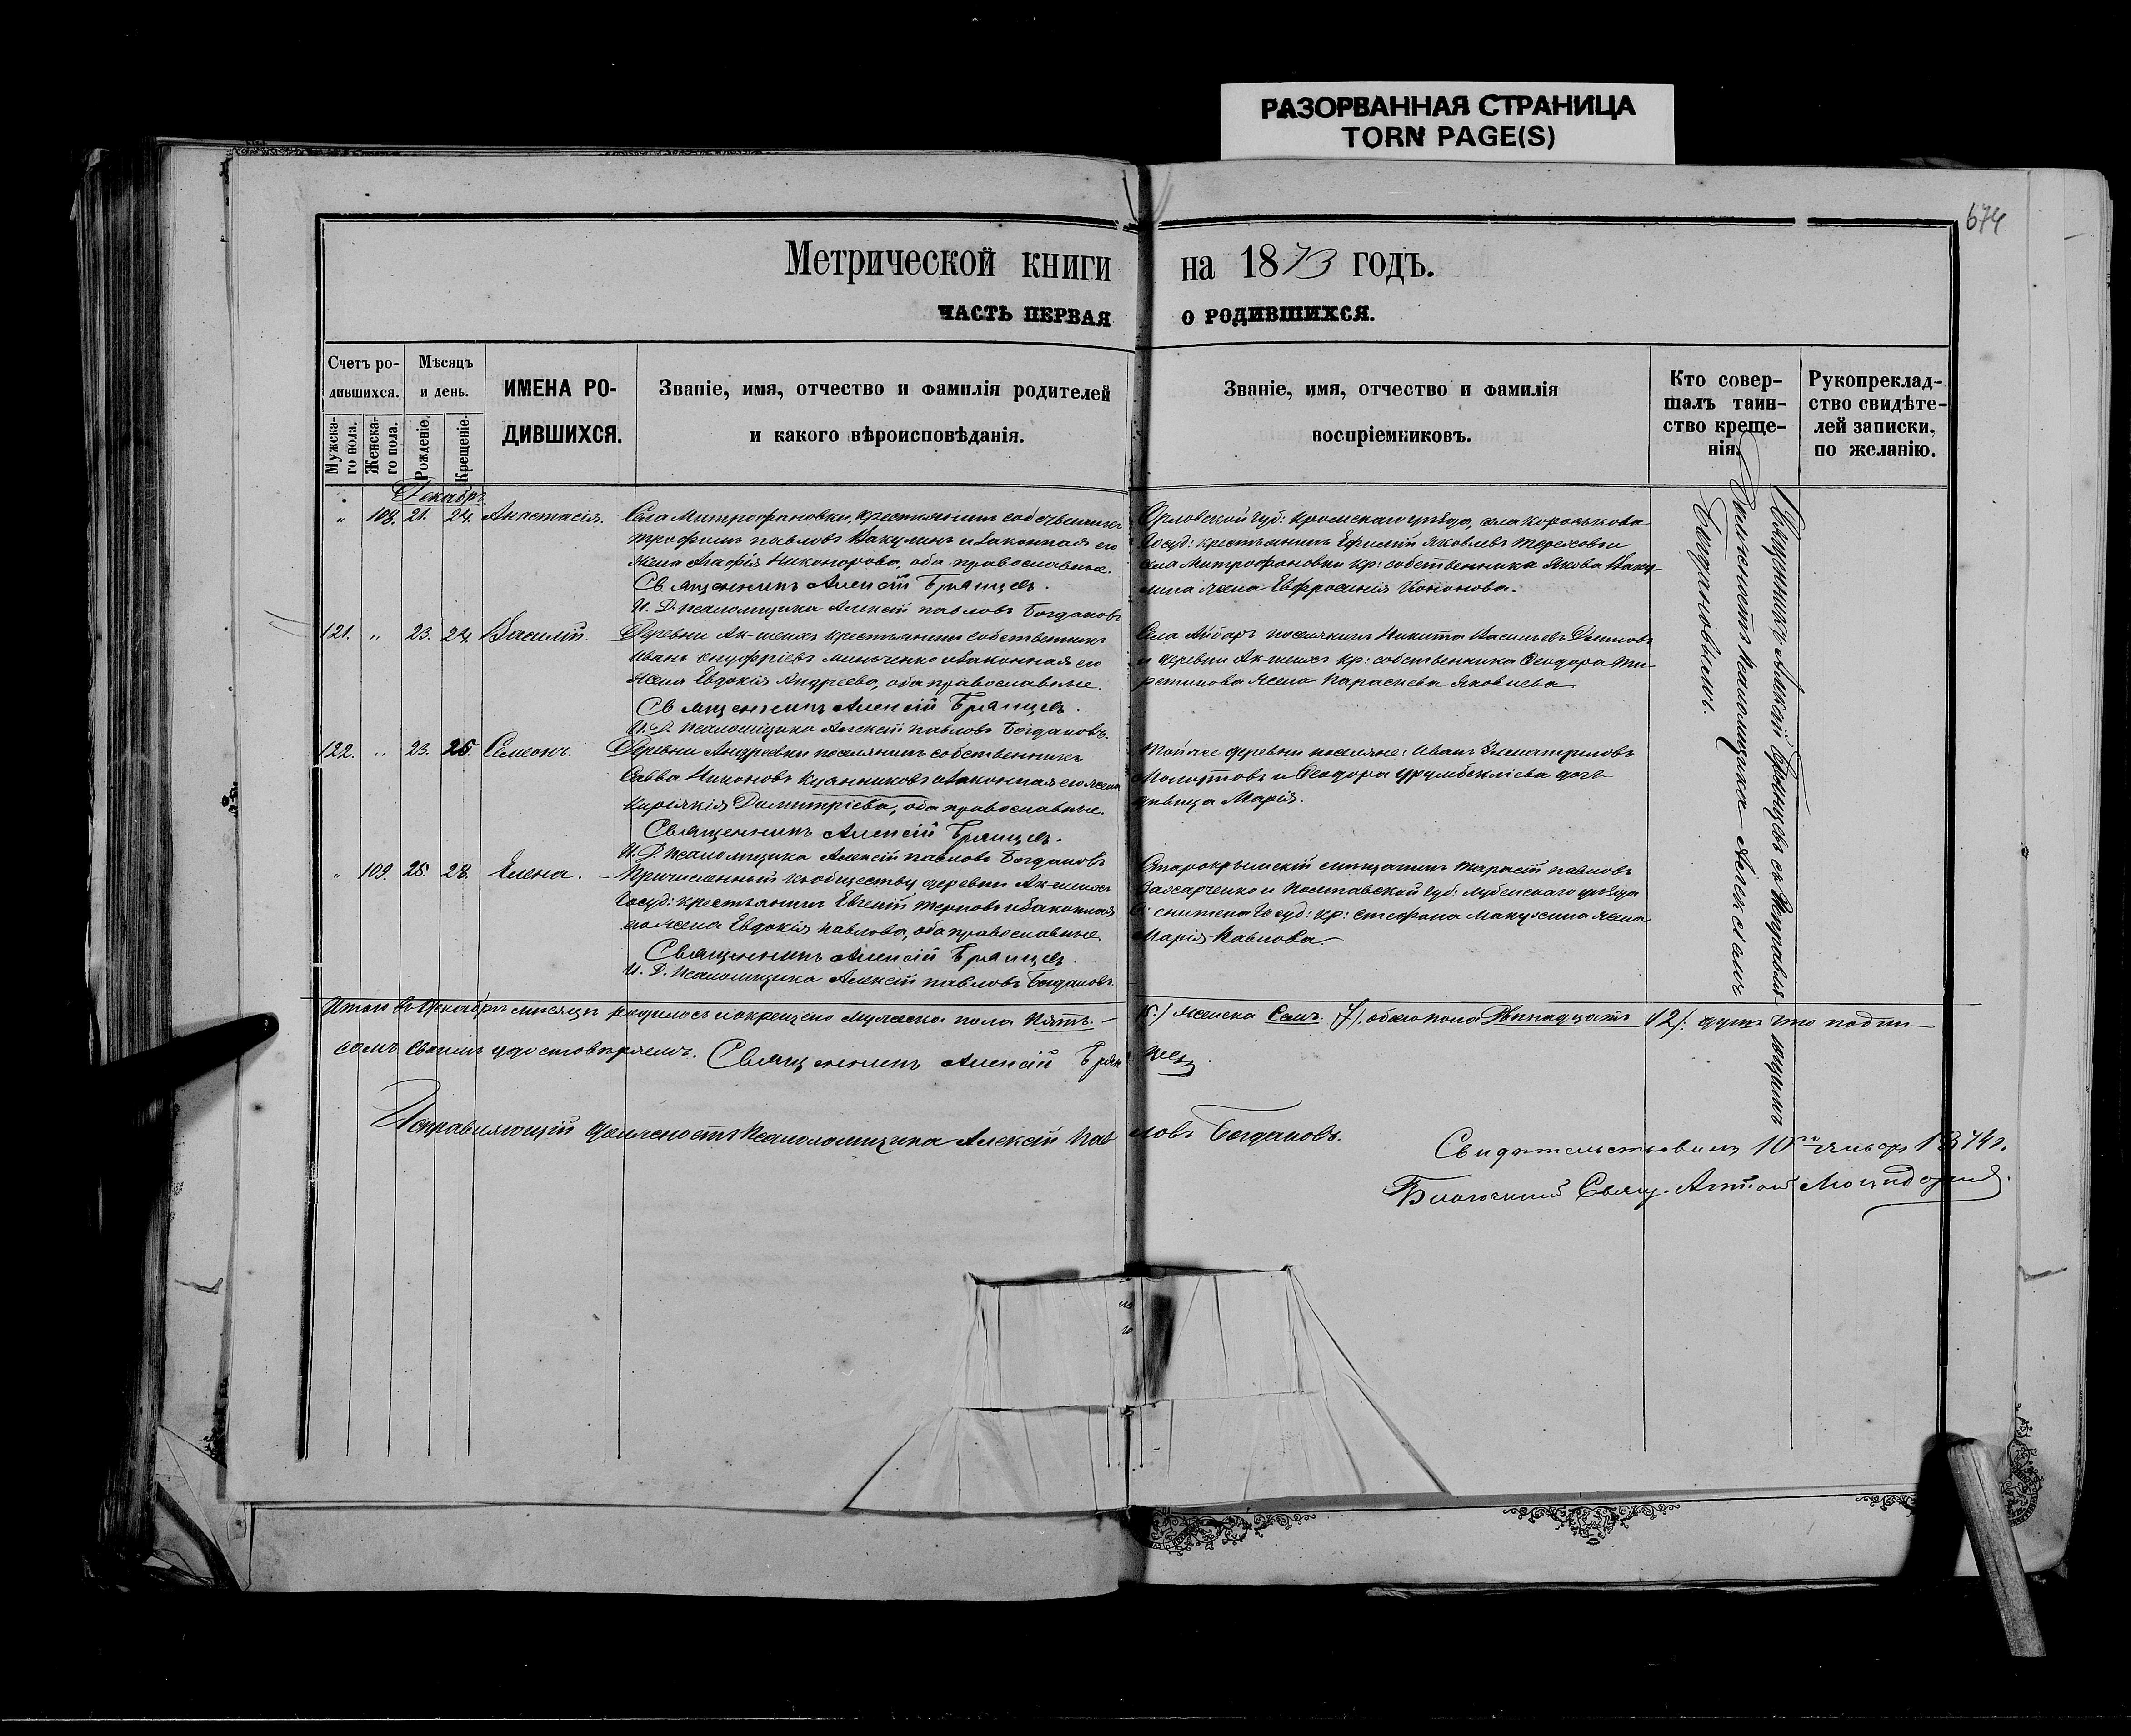 РАЗОРВАННАЯ СТРАНИЦА
TORN PAGE(S)
674
Метрической книги на 1873 годъ.
ЧАСТЬ ПЕРВАЯ О РОДИВШИХСЯ.
Счетъ ро-
дившихся.
Мужска-
го пола.
Женска-
го пола.
Мѣсяцъ
и день.
Рожденіе.
Крещеніе.
ИМЕНА РО-
ДИВШИХСЯ.
Званіе, имя, отчество и фамилія родителей
и какого вѣроисповѣданія.
Званіе, имя, отчество и фамилія
воспріемниковъ.
Кто совер-
шалъ таин-
ство креще-
нія.
Рукопреклад-
ство свидѣте-
лей записки,
по желанію.
Декабрь
" 108. 21. 24. Анастасія.
Села Митрофановки, крестьянинъ собственникъ
Трофимъ Павловъ Вакулинъ и законная его
жена Агафія Никонорова, оба православные.
Священникъ Алексій Брянцевъ.
И. Д. Псаломщика Алексій Павловъ Богдановъ
Орловской губ: Кромскаго уѣзда, села Короськова
Госуд: крестьянинъ Ефимій Яковлевъ и
села Митрофановки кр: собственника Якова Ваку-
лина жена Евфросинія Кононова.
121. " 23. 24. Василій.
Деревни Ак-шеихъ крестьянинъ собственникъ
Иванъ Онуфріевъ Миньченко и законная его
жена Евдокія Андреева, оба православные.
Священникъ Алексій Брянцевъ.
И. Д. Псаломщика Алексій Павловъ Богдановъ.
Села Айбаръ поселянинъ Никита Васильевъ
и деревни Ак-шеихъ кр: собственника Ѳеодора
жена Параскева Яковлева
122. " 23. 25. Симеонъ.
Деревни Андреевки поселянинъ собственникъ
Савва Никоновъ и законная его жена
Киріакія Димитріева, оба православные.
Священникъ Алексій Брянцевъ.
И. Д. Псаломщика Алексій Павловъ Богдановъ
Той же деревни поселяне: Иванъ
и Ѳеодора дочь
дѣвица Марія.
" 109. 25. 28. Елена.
Причисленный къ обществу деревни Ак-шеихъ
Госуд: крестьянинъ Евгеній Терновъ и законная
его жена Евдокія Павлова, оба православные.
Священникъ Алексій Брянцевъ.
И. Д. Псаломщика Алексій Павловъ Богдановъ.
Старокрымскій мѣщанинъ Тарасій Павловъ
и Полтавской губ: Лубенскаго уѣзда
С: Снитина Госуд: кр: Стефана жена
Марія Павлова.
Священникъ Алексій Брянцевъ съ Исправля-
ющимъ
Должность Псаломщика Алексіемъ
Богдановымъ.
Итого въ Декабрѣ мѣсяцѣ родилось и окрещено мужеска пола пять. — (5.) женска Семь. (7). обоего пола Двѣнадцать (12). душъ что подпи-
сомъ своимъ удостовѣряемъ. Священникъ Алексій Брянцевъ.
Исправляющій должность Псаломщика Алексій Павловъ Богдановъ.
Свидѣтельствовалъ 10го Января 1874 г.
Благочинный Свящ.